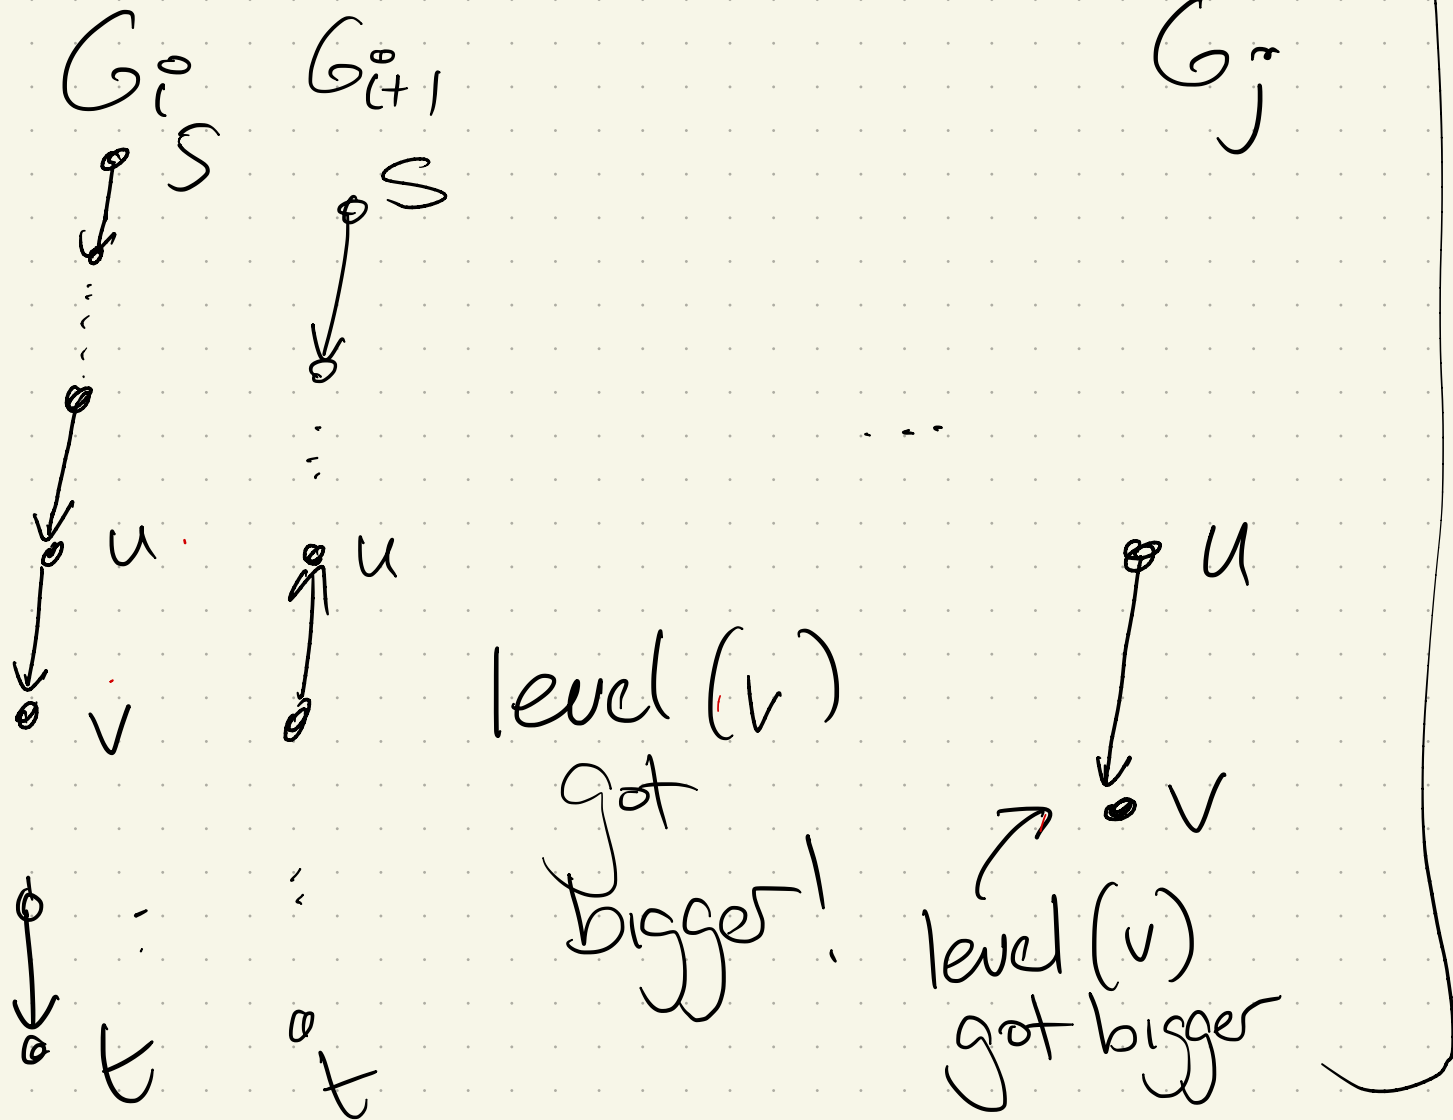 G_i
S
u
v
t
G_{i+1}
S
u
t
level (v)
got
bigger!
...
G_j
u
v
level (v)
got bigger